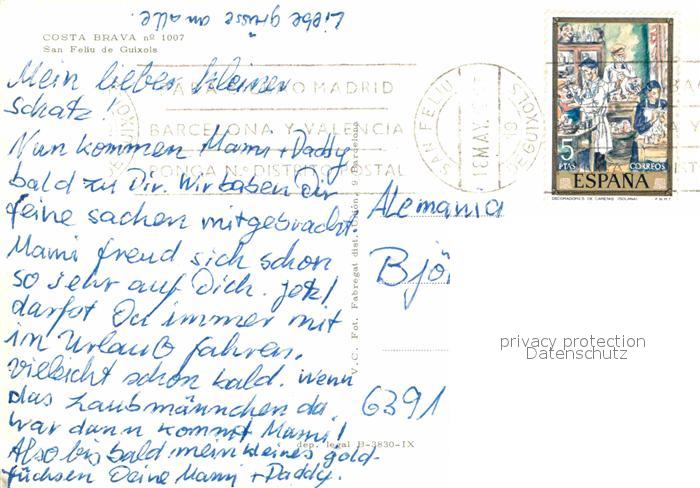 Liebe grüsse an alle.
COSTA BRAVA nº 1007
San Feliu de Guixols
Mein lieber kleiner
Schatz!
Nun kommen Mami + Daddy
bald zu Dir. Wir haben dir
feine sachen mitgebracht.
Mami freud sich schon
so sehr auf Dich. Jetzt
darfst Du immer mit
in Urlaub fahren.
vielleicht schon bald. wenn
das Laubmännchen da
war dann kommt Mami!
Also bis bald mein kleines gold-
füchsen Deine Mami + Daddy.
MADRID
BARCELONA Y VALENCIA
PONGA N.º DISTRITO POSTAL
SAN FELIU
GUIXOLS
18 MAY
5
PTAS
CORREOS
ESPAÑA
DECORADORES DE CARETAS (SOLANA)
F.N.M.T.
V.C. Fot. Fabregat dist. 9 Barcelona
Alemania
Björ
privacy protection
Datenschutz
6391
dep. legal B-3830-IX